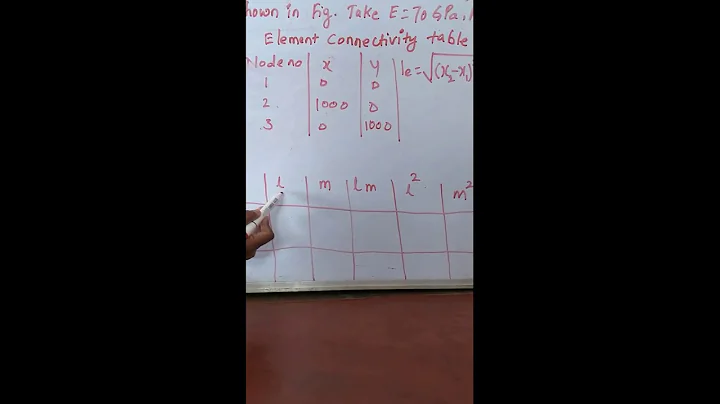 shown in Fig. Take E=70 GPa,
Element Connectivity table
Node no x y le=√(x₂-x₁)
1 0 0
2 1000 0
3 0 1000
l m lm l² m²